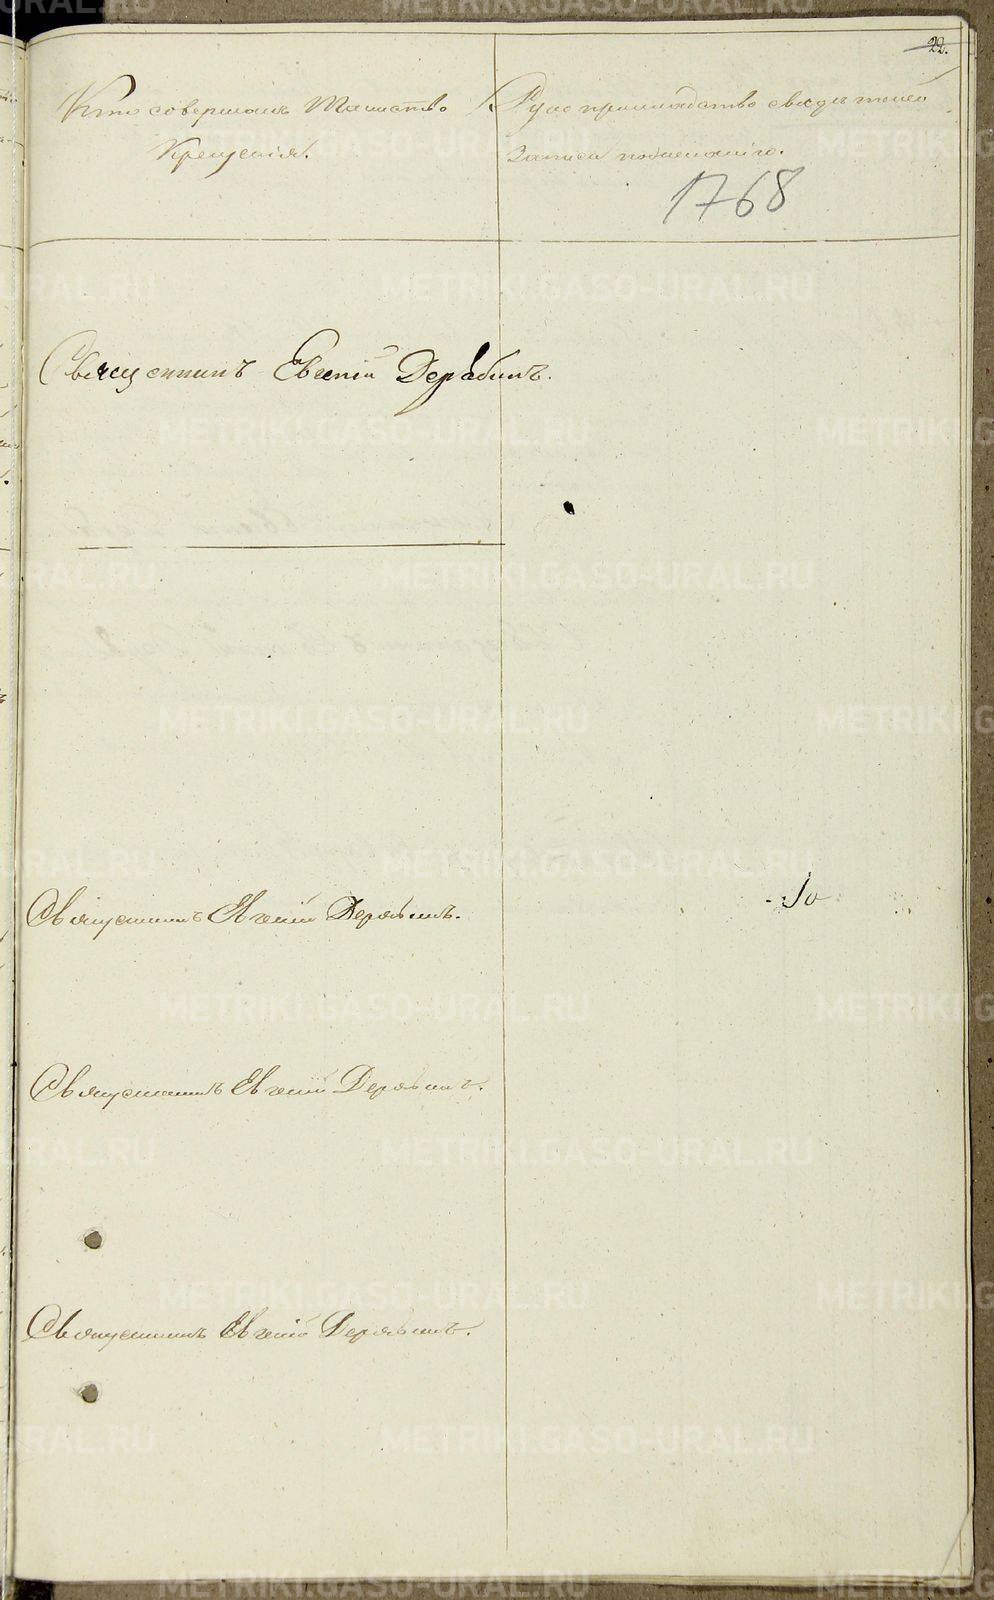 22.
Кто совершалъ Таинство
Крещенія.
Рукоприкладство свидѣтелей
записи по желанію.
1768
Священникъ Евгеній Дерябинъ.
Священникъ Евгеній Дерябинъ.
Священникъ Евгеній Дерябинъ.
Священникъ Евгеній Дерябинъ.
METRIKI.GASO-URAL.RU